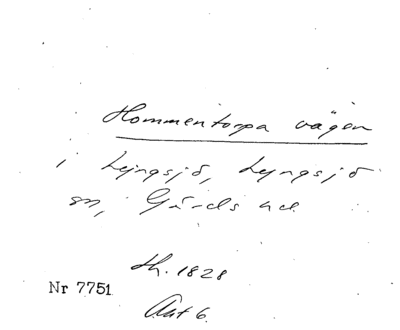 Hommentorpa vägen
i Lyngsjö, Lyngsjö
sn, Gärds hd.
th. 1828
Nr 7751
Akt 6.